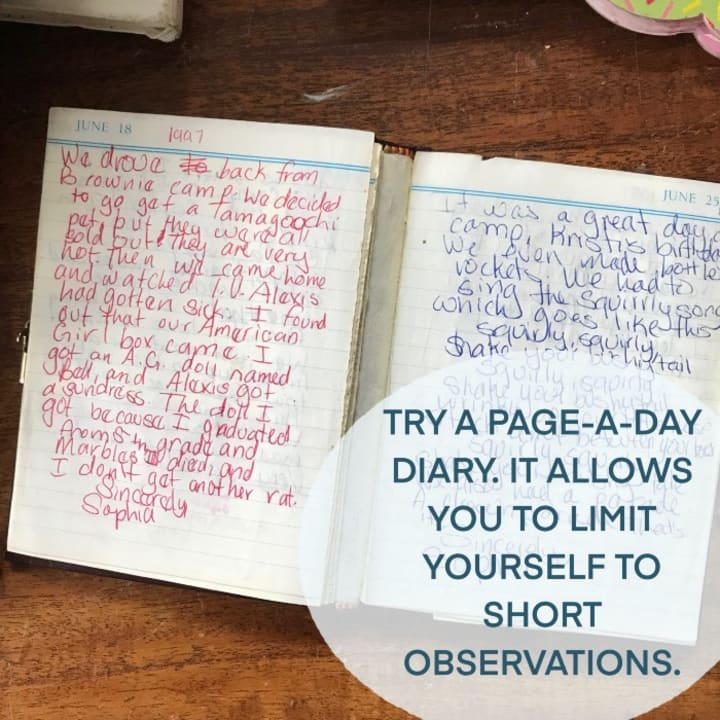 JUNE 18
1997
We drove back from
Brownie camp. We decided
to go get a Tamagoochi
pet, but they were all
sold out. They are very
hot. Then we came home
and watched T.V. Alexis
had gotten sick. I found
out that our American
Girl box came. I
got an A.G. doll named
Bell, and Alexis got
a sundress. The doll I
got because I graduated
from 5th grade and
Marbles died, and
I don't get another rat.
Sincerely
Sophia
JUNE 25
It was a great day
camp. Kristi's birthday
We even made bottle
rockets. We had to
sing the squirrly song
which goes like this
squirly, squirly,
shake your bushy tail
squirly, squirly
shake your bushy tail
Sincerely
TRY A PAGE-A-DAY
DIARY. IT ALLOWS
YOU TO LIMIT
YOURSELF TO
SHORT
OBSERVATIONS.